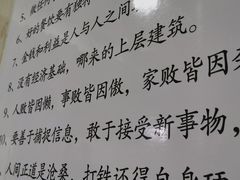 5、做任何
6、好的餐饮要有独特
7、金钱和利益是人与人之间
8、没有经济基础，哪来的上层建筑。
9、人败皆因懒，事败皆因傲，家败皆因
10、要善于捕捉信息，敢于接受新事物，
人间正道是沧桑，打铁还得自身硬